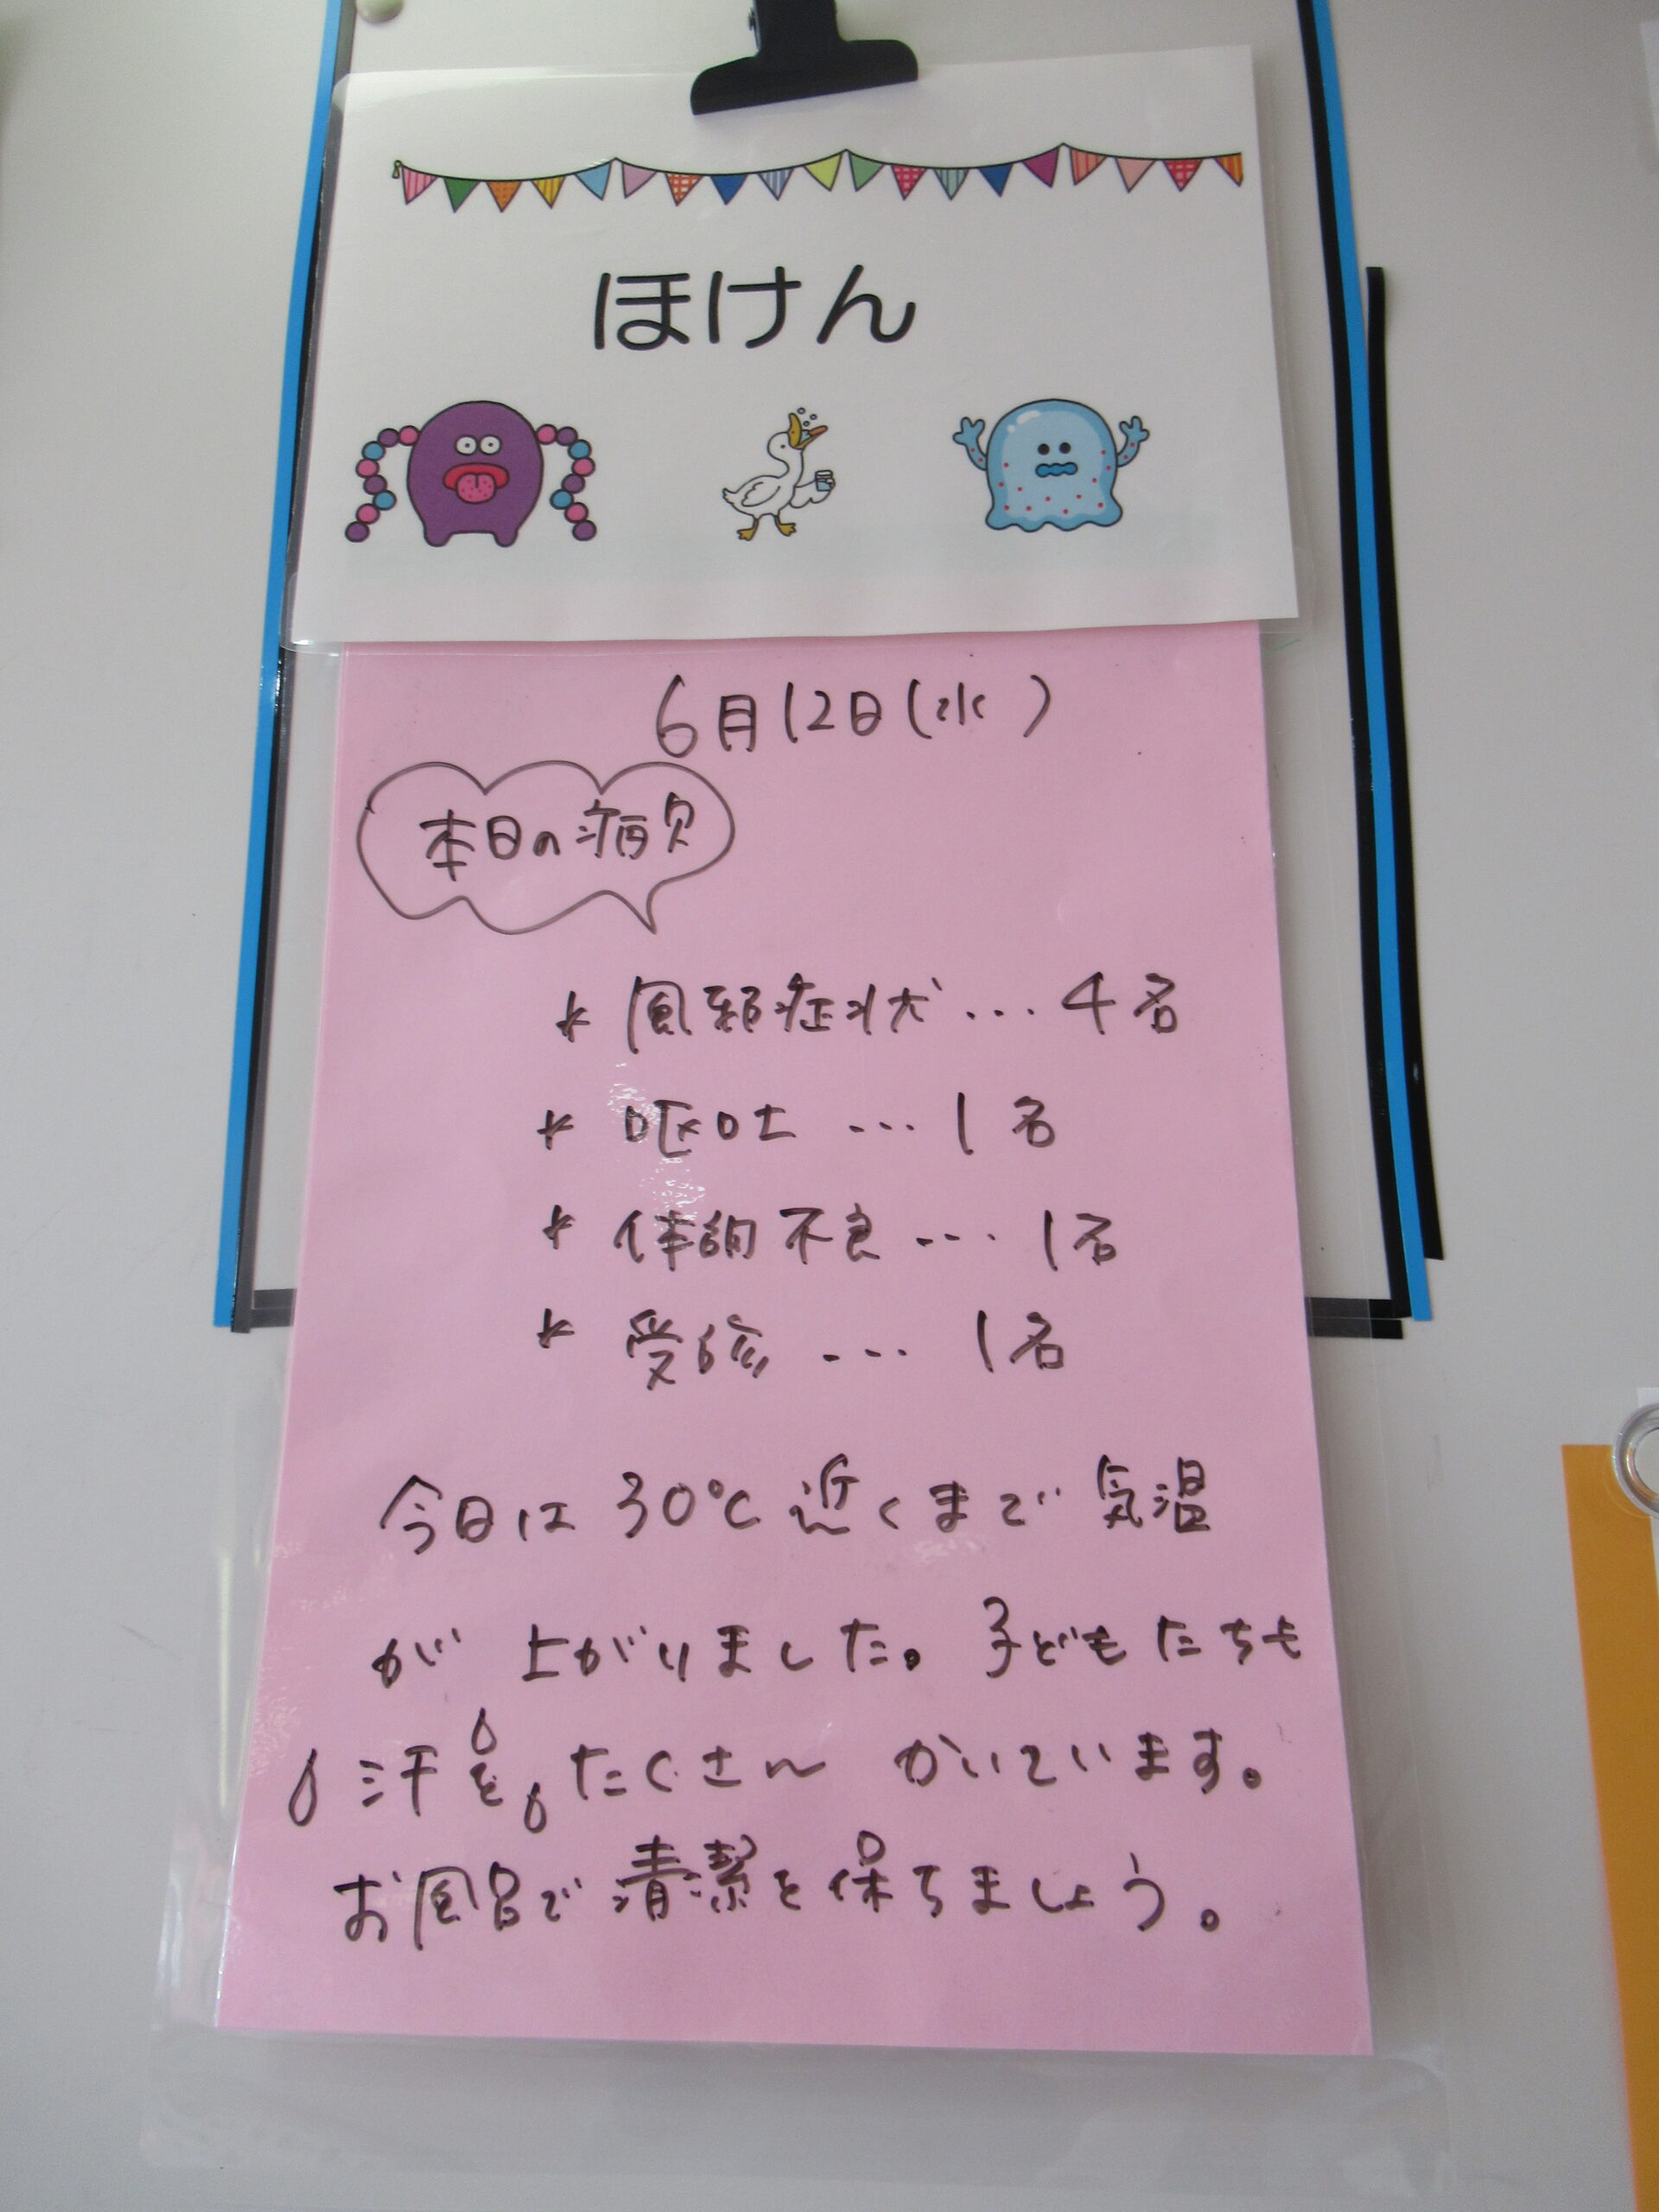 ほけん
6月12日(水)
本日の病欠
* 風邪症状…4名
* 嘔吐…1名
* 体調不良…1名
* 受診…1名
今日は30℃近くまで気温
が上がりました。子どもたちも
汗をたくさんかいています。
お風呂で清潔を保ちましょう。